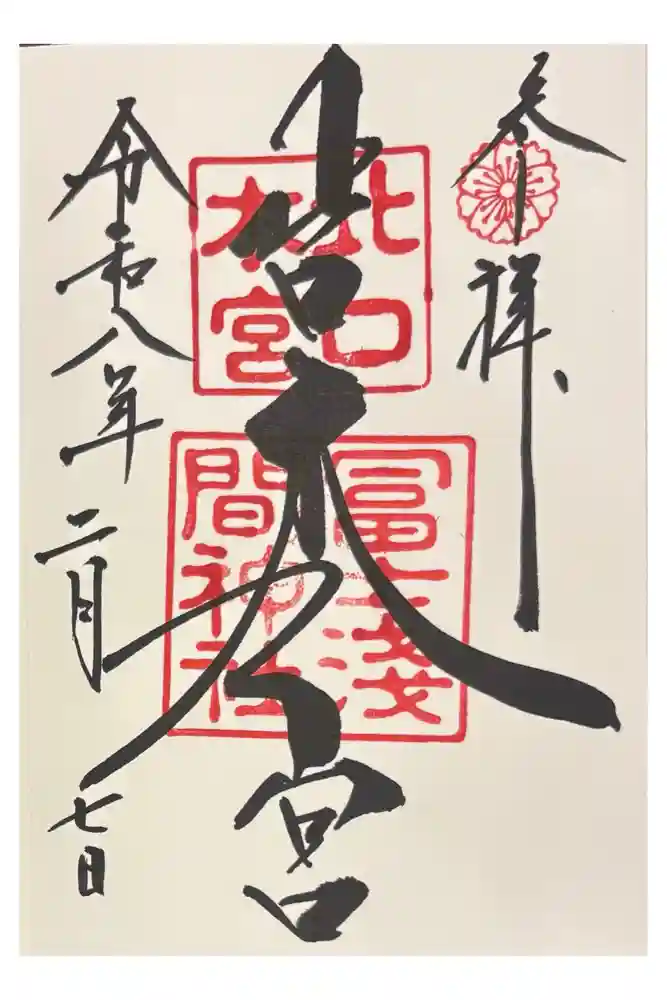 参拝
北口本宮
北口
本宮
冨士淺
間神社
令和八年二月七日